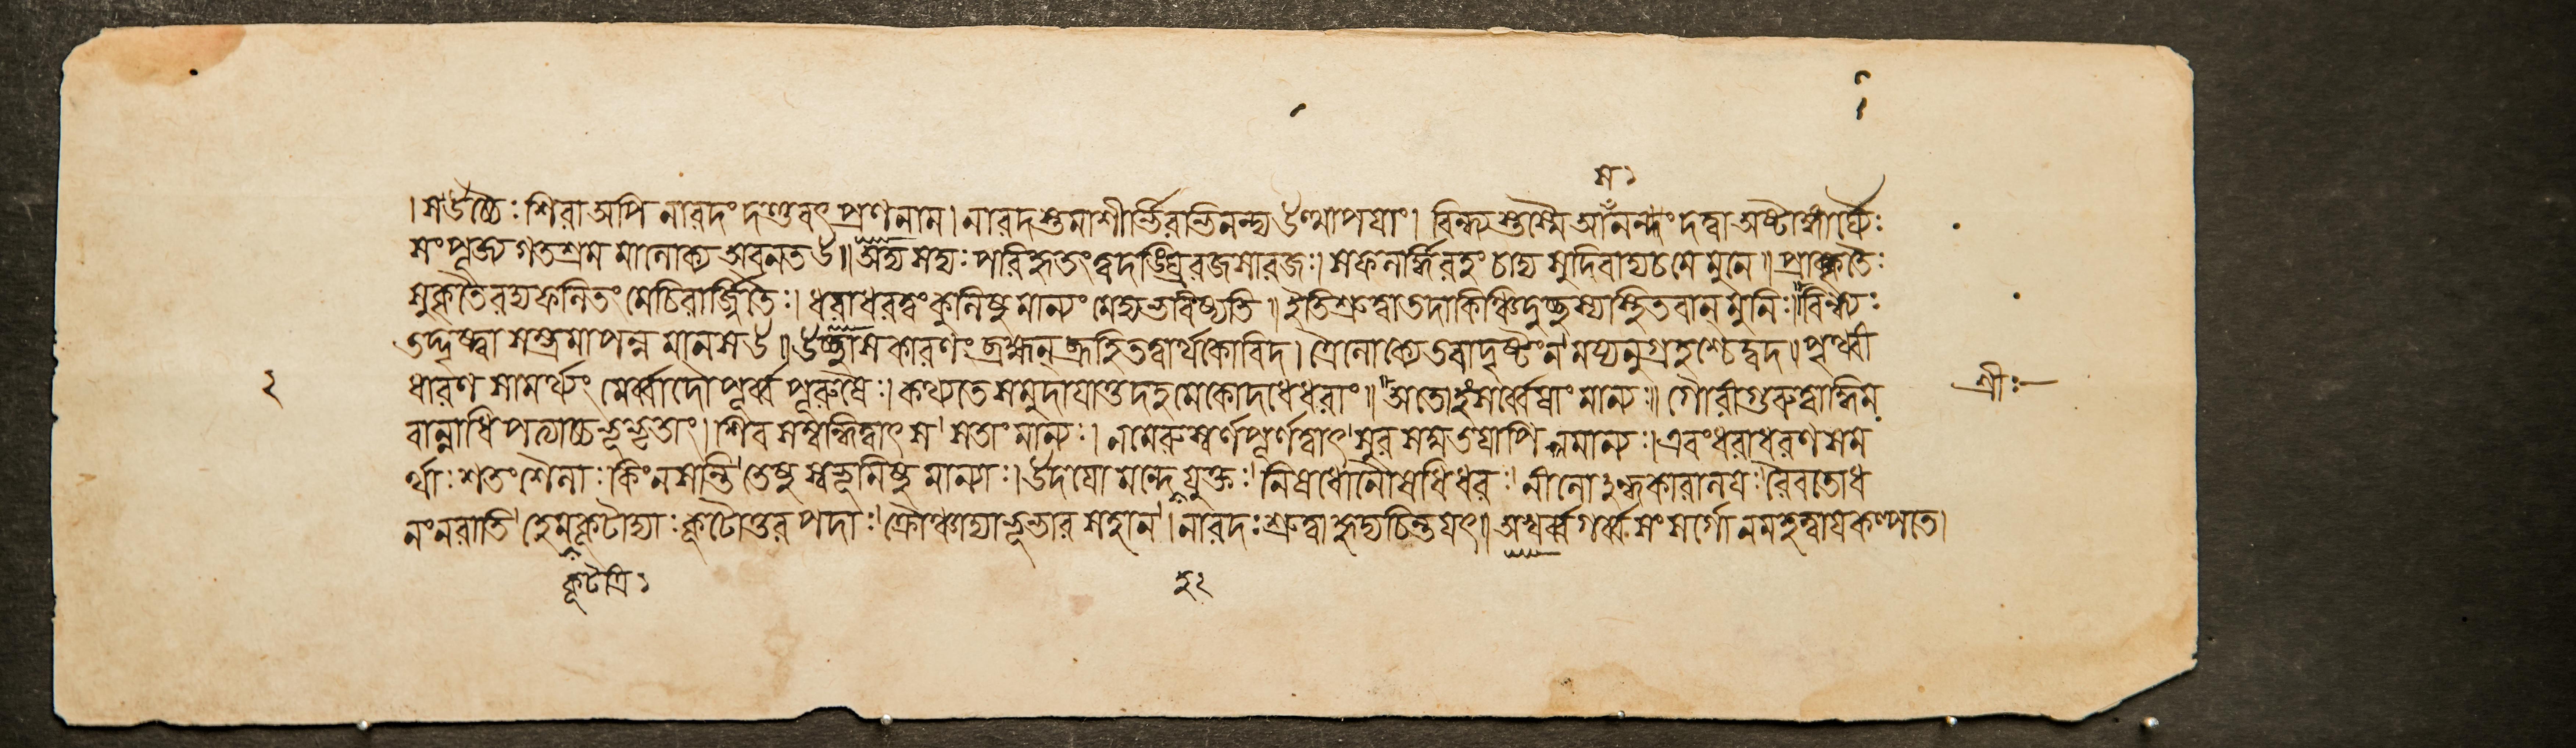 স১
। স উচ্চৈঃ শিরা অপি নারদং দণ্ডবৎ প্রণনাম। নারদস্তমাশীর্ভিরভিনন্দ্য উত্থাপয়াং। বিন্ধ্যস্তস্মৈ আসনং দত্বা অষ্টাঙ্গার্ঘৈঃ
সংপূজ্য গতশ্রমমালোক্য অবনত উ॥ অদ্য সদ্যঃ পরিহৃতং ত্বদঙ্ঘ্রিরজসা রজঃ। সফলার্দ্ধিরহং চাদ্য সুদিবাদ্য চ মে মুনে॥ প্রাক্কৃতৈঃ
সুকৃতৈরদ্য ফলিতং মে চিরার্জ্জিতৈঃ। ধরাধরত্বং কুলিষু মান্যং মেদ্য ভবিষ্যতি॥ ইতি শ্রুত্বা তদা কিঞ্চিদুচ্ছ্বস্য স্থিতবান্ মুনিঃ॥ বিন্ধ্যঃ
তদ্দৃষ্ট্বা সম্ভ্রমাপন্নমানস উ॥ উচ্ছ্বাসকারণং ব্রহ্মন্ ব্রূহি তত্বার্থকোবিদ। ত্রৈলোক্যে তবাদৃষ্টং ন ময্যনুগ্রহশ্চেদ্বদ॥ পৃথ্বী
ধারণসামর্থ্যং মের্ব্বাদৌ পূর্ব্বপূরুষৈঃ। কথ্যতে সমুদায়াত্তদহমেকো দধে ধরাং॥ অতোঽহং সর্ব্বেষাং মান্যঃ॥ গৌরীগুরুত্বাদ্ধিম
বান্নাধিপত্যাচ্চ ভূভৃতাং। শিবসম্বন্ধিত্বাৎ স সতাং মান্যঃ। ন মেরুস্বর্ণপূর্ণত্বাৎ সুরসদ্মতয়াপি ন মান্যঃ। এবং ধরাধরণসম
র্থাঃ শতং শৈলাঃ কিং ন সন্তি তেষু স্বভূমিষু মান্যাঃ। উদয়ো মন্দেহযুক্তঃ নিষধো নৌষধিধরঃ নীলোঽন্ধকারালয়ঃ রৈবতো ধ
নং ন রাতি হেমকূটাদ্যাঃ কূটোত্তরপদাঃ ক্রৌঞ্চাদ্যা ভূভারসহা ন। নারদঃ শ্রুত্বা হৃদ্যচিন্তয়ৎ॥ অখর্ব্বগর্ব্বসংসর্গো ন মহত্বায় কল্পতে।
২
শ্রীঃ
কূটত্রি১
হ২